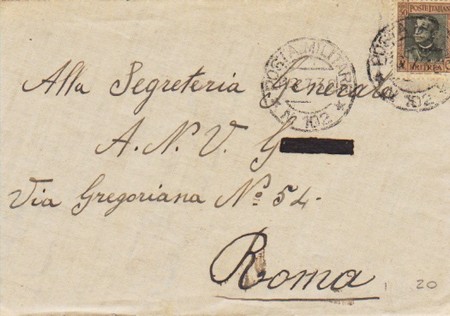 POSTE ITALIANE
POSTA MILITARE
Nº 102
POSTA
102
Alla Segreteria Generale
A. N. V. G
Via Gregoriana Nº 54.
Roma
20